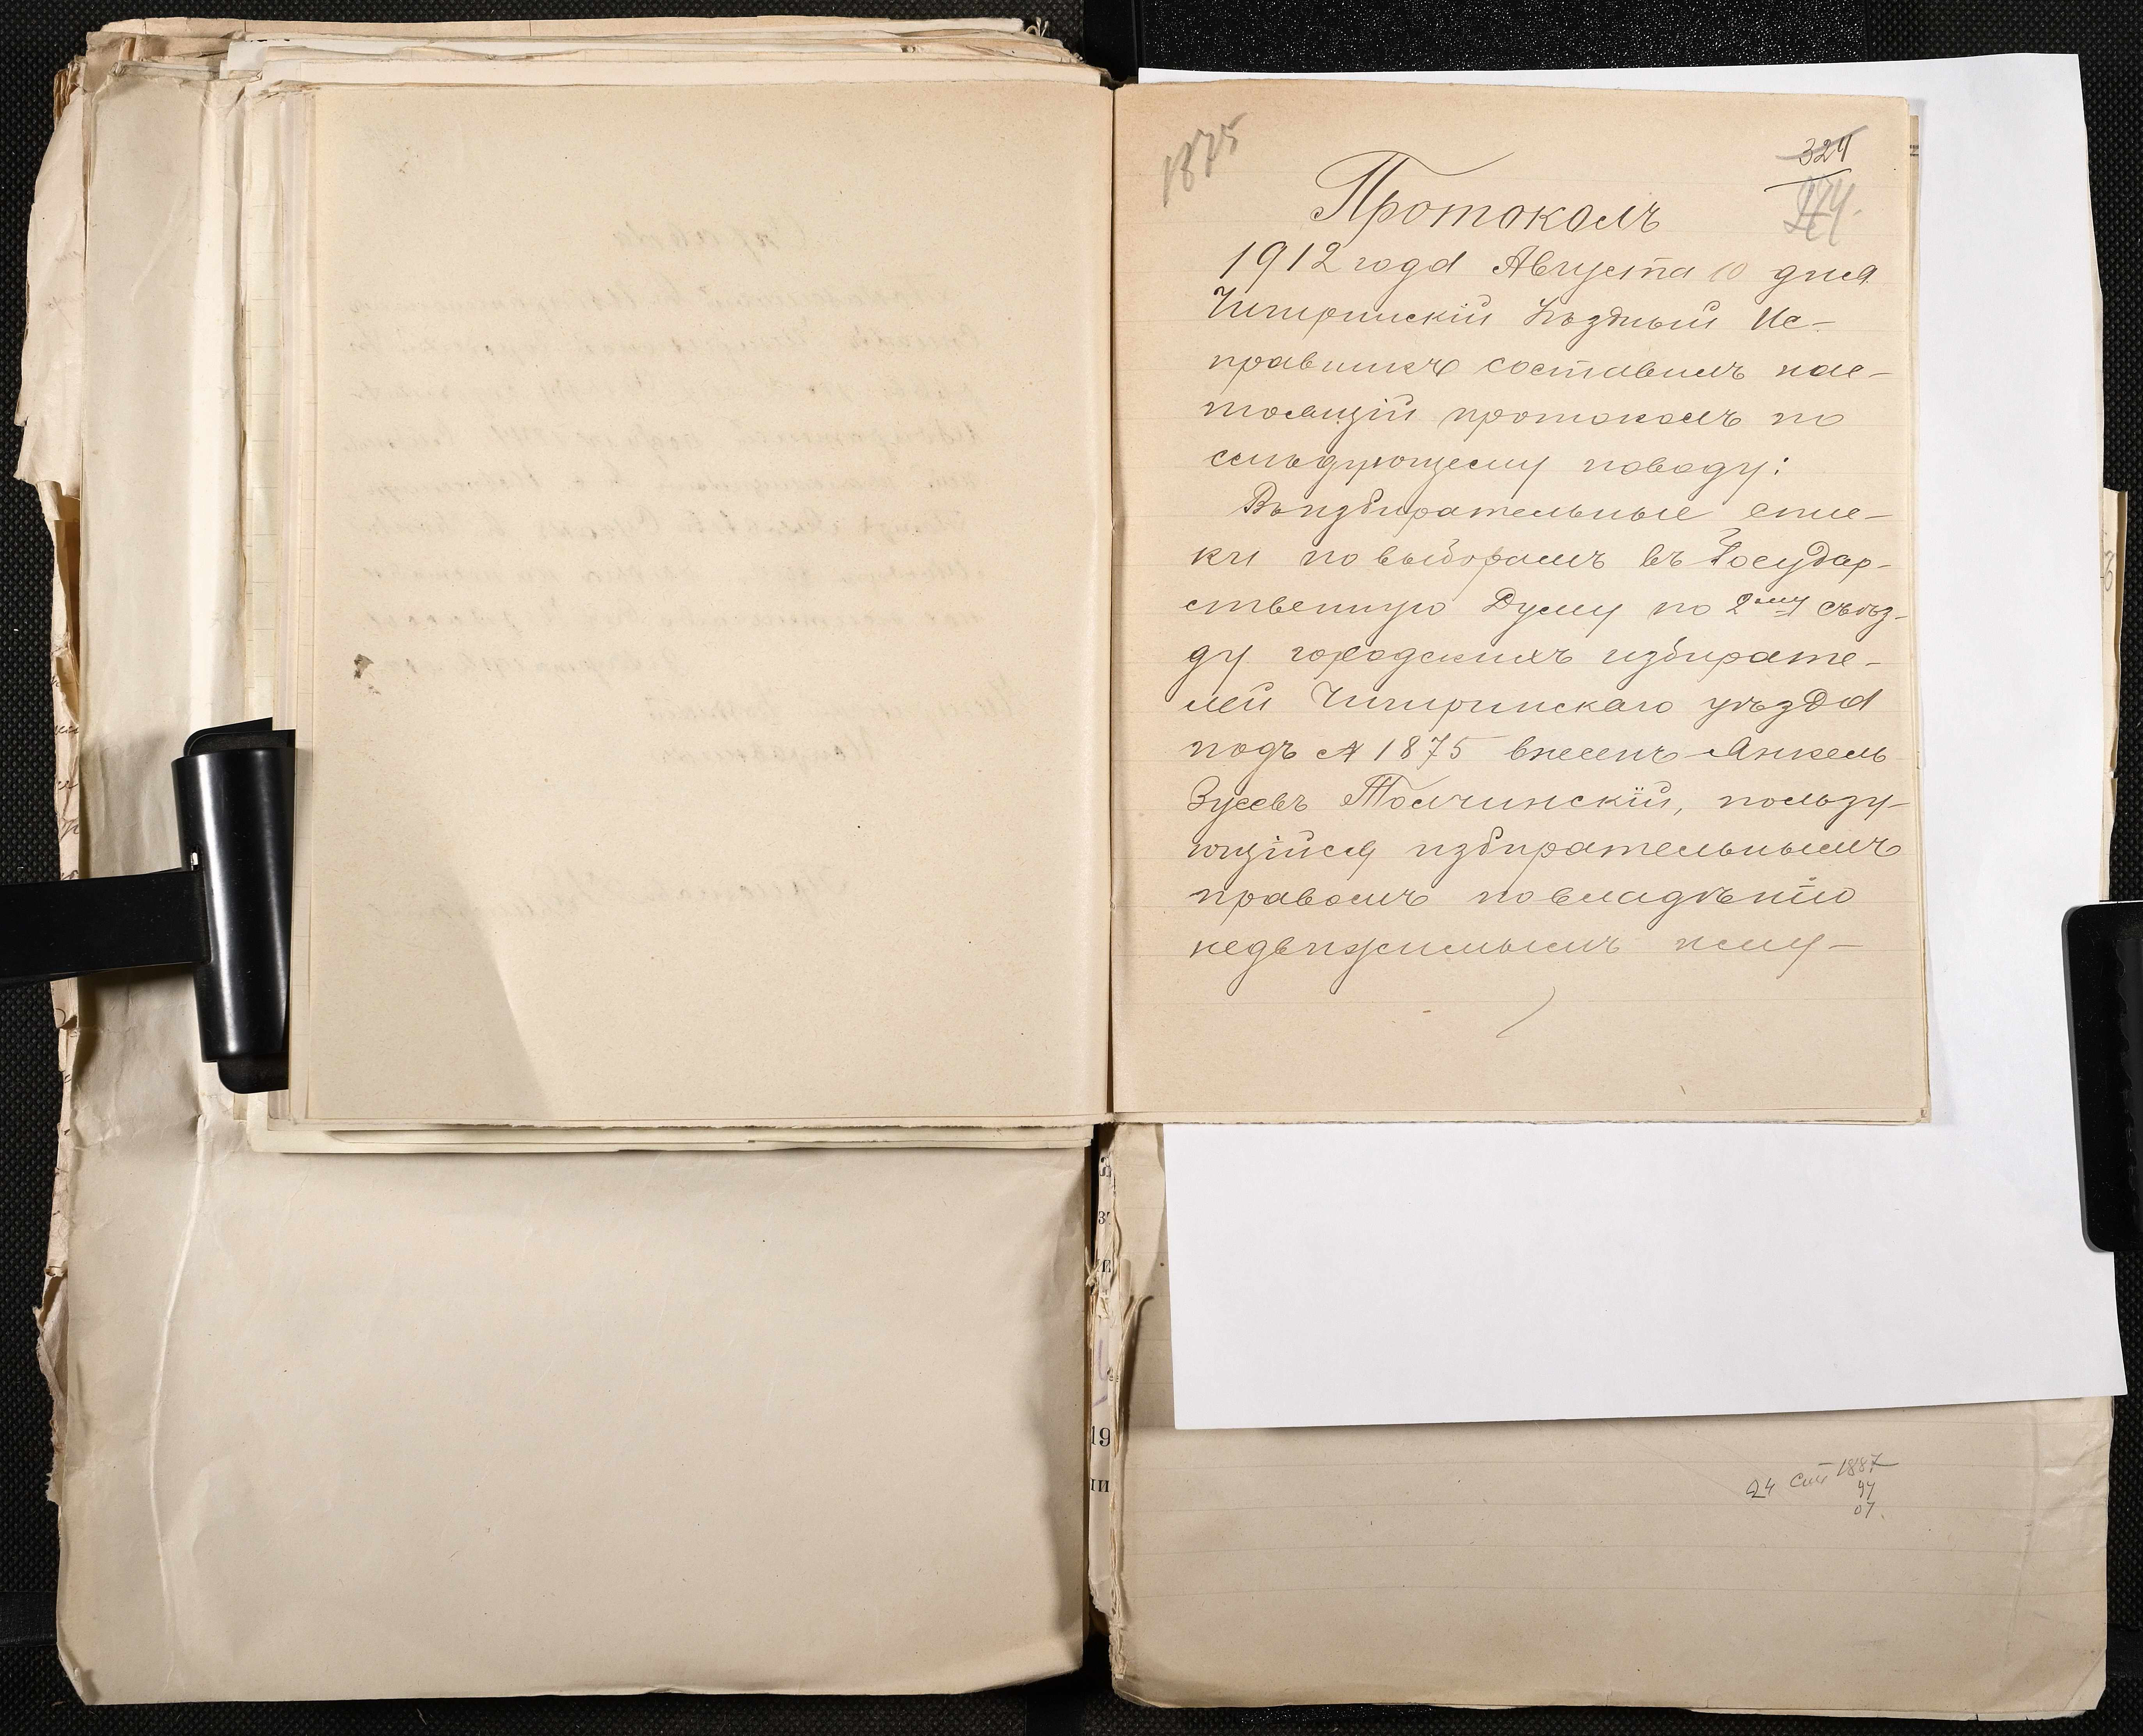 1875
324
274.
Протоколъ
1912 года Августа 10 дня
Чигиринскій Уѣздный Ис-
правникъ составилъ нас-
тоящій протоколъ по
слѣдующему поводу:
Въ избирательные спис-
ки по выборамъ въ Государ-
ственную Думу по 2му съѣз-
ду городскихъ избирате-
лей Чигиринскаго уѣзда
подъ № 1875 внесенъ Анкель
Зусевъ Толчинскій, пользу-
ющійся избирательнымъ
правомъ по владѣнію
недвижимымъ иму-
19
24 1887
97
07.